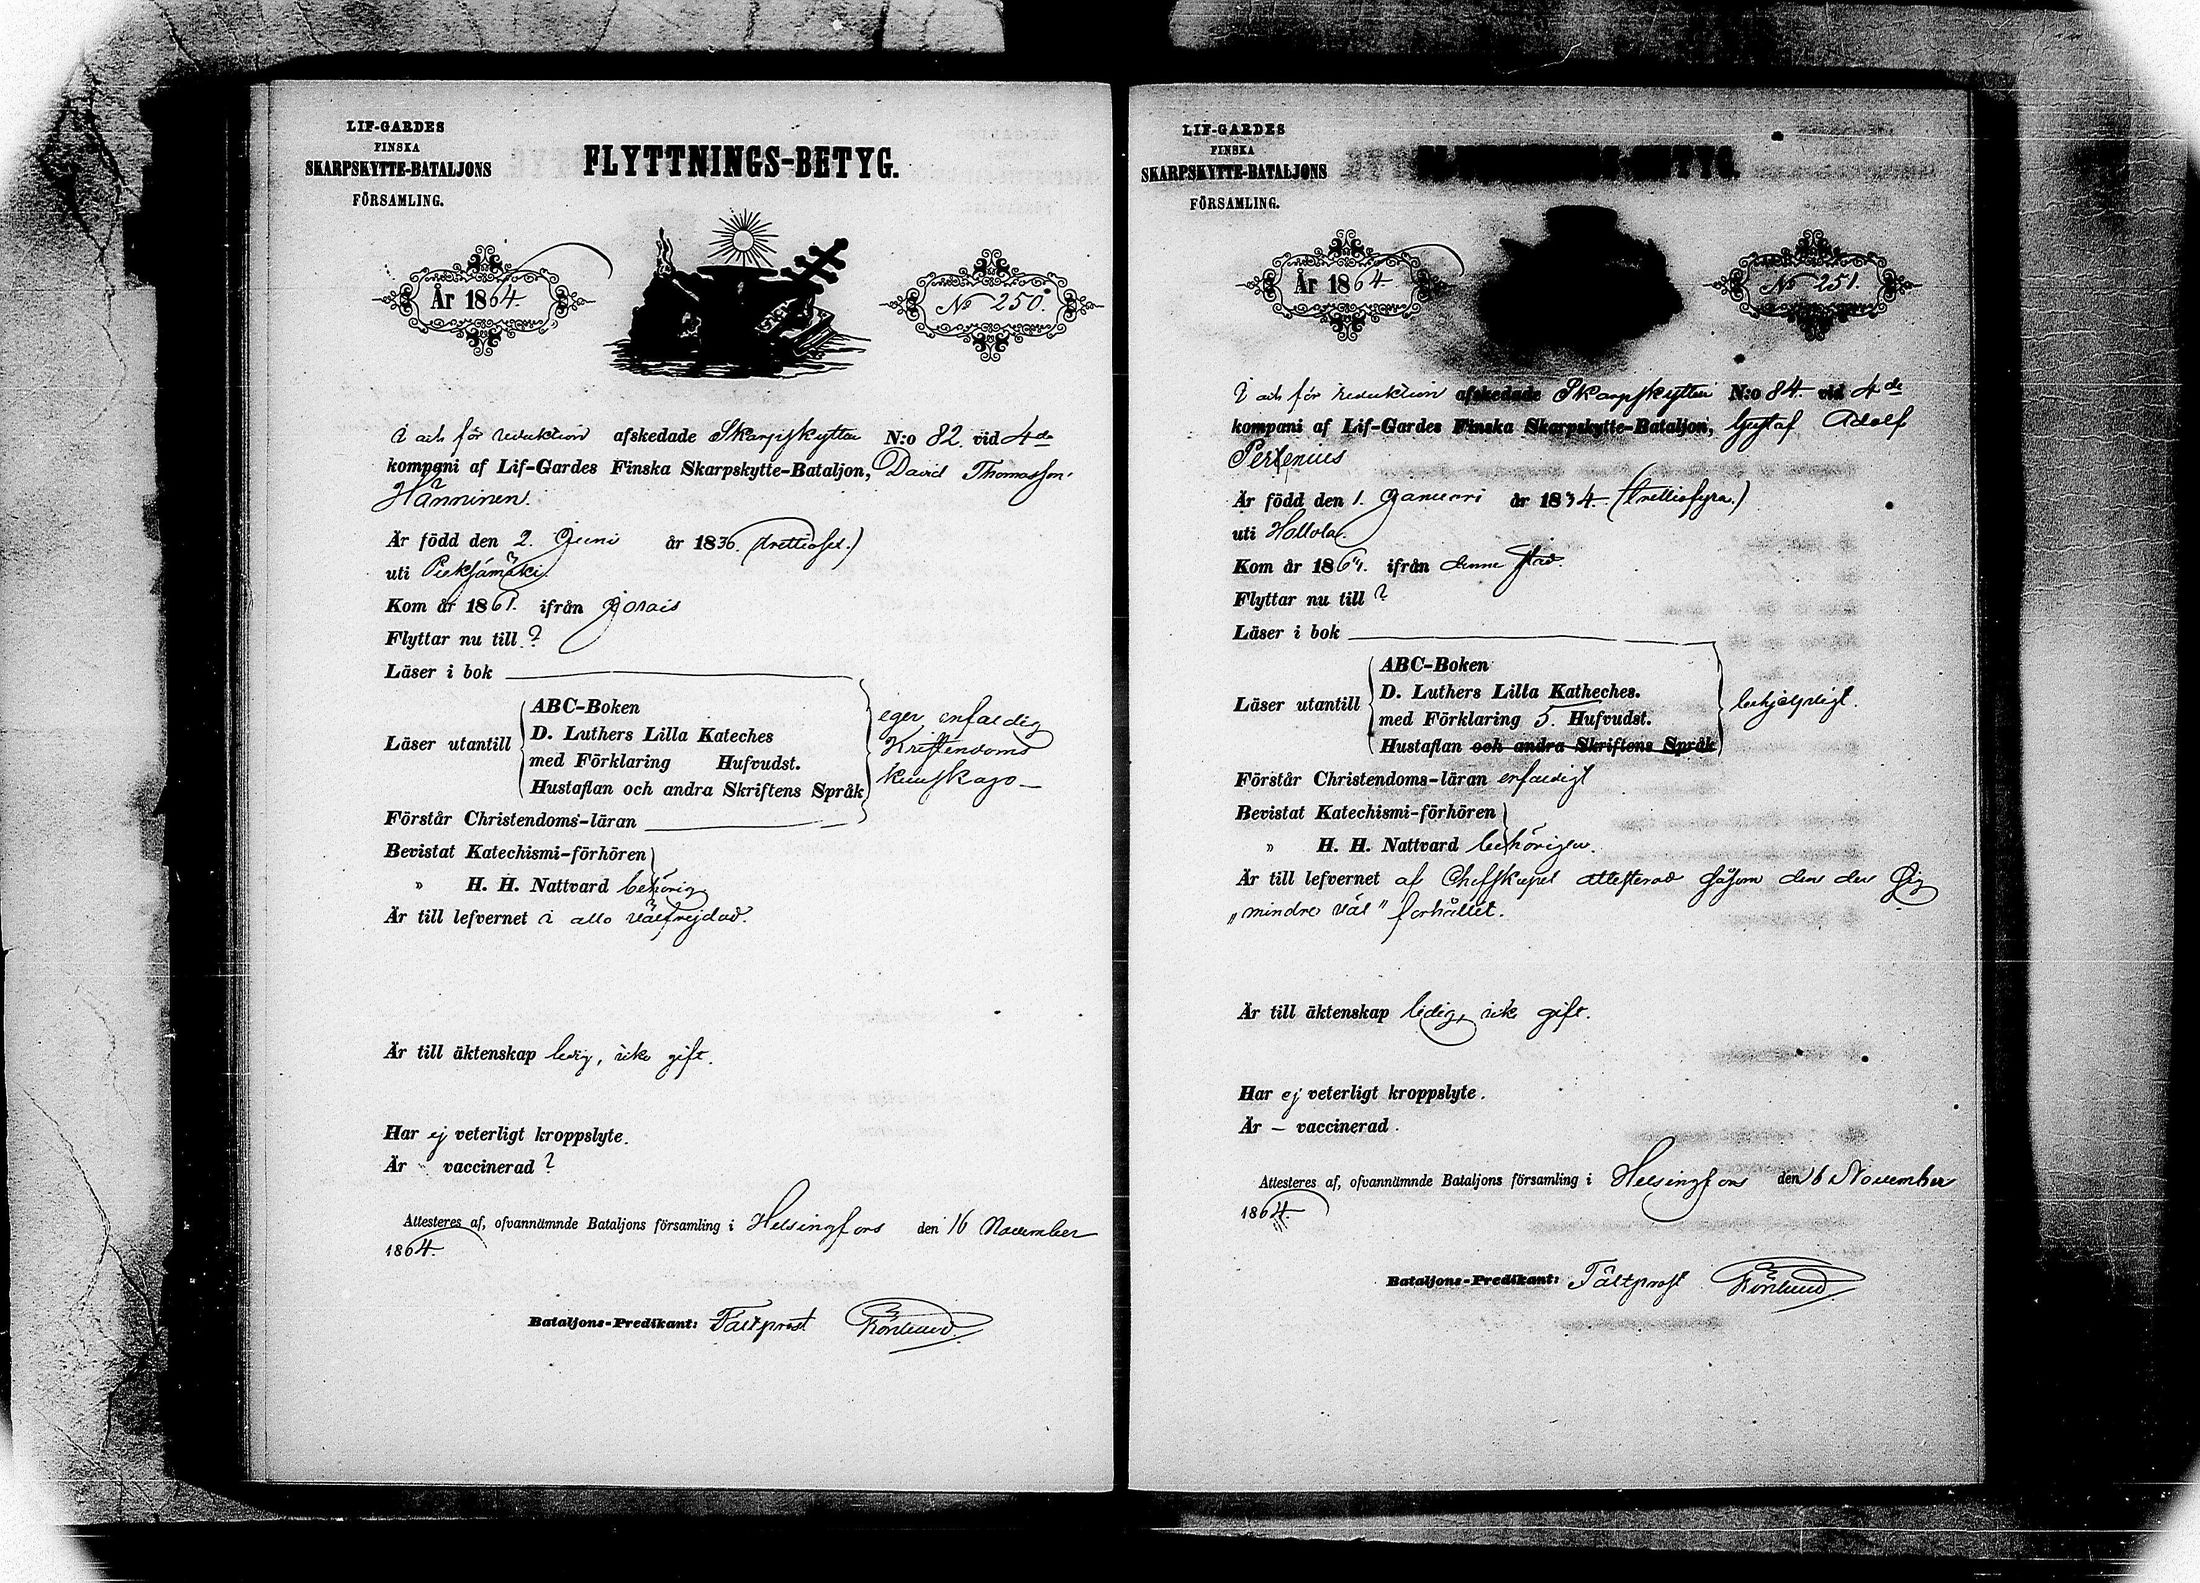 LIF-GARDES
FINSKA
SKARPSKYTTE-BATALJONS
FÖRSAMLING.
FLYTTNINGS-BETYG.
År 1864.
No 250.
I och för reduktion afskedade Skarpskytten N:o 82 vid 4de
kompani af Lif-Gardes Finska Skarpskytte-Bataljon, David Thomasson
Hänninen.
Är född den 2. Juni år 1836. (trettiosex.)
uti Pieksämäki.
Kom år 1861. ifrån Jorois
Flyttar nu till ?
Läser i bok
Läser utantill
ABC-Boken
D. Luthers Lilla Kateches
med Förklaring Hufvudst.
Hustaflan och andra Skriftens Språk
eger enfaldig
Kristendoms
kunskap
Förstår Christendoms-läran
Bevistat Katechismi-förhören
" H. H. Nattvard behörig
Är till lefvernet i allo välfrejdad.
Är till äktenskap ledig, icke gift.
Har ej veterligt kroppslyte.
Är vaccinerad ?
Attesteres af, ofvannämnde Bataljons församling i Helsingfors den 16 November
1864.
Bataljons-Predikant: Fältprost
LIF-GARDES
FINSKA
SKARPSKYTTE-BATALJONS
FÖRSAMLING.
FLYTTNINGS-BETYG.
År 1864
No 251.
I och för reduktion afskedade Skarpskytten N:o 84. vid 4de
kompani af Lif-Gardes Finska Skarpskytte-Bataljon, Gustaf Adolf
Pertenius
Är född den 1. Januari år 1834. (trettiofyra.)
uti Hollola.
Kom år 1864. ifrån denne stad.
Flyttar nu till ?
Läser i bok
Läser utantill
ABC-Boken
D. Luthers Lilla Katheches.
med Förklaring 5. Hufvudst.
Hustaflan och andra Skriftens Språk
behjelpligt.
Förstår Christendoms-läran enfaldigt
Bevistat Katechismi-förhören
" H. H. Nattvard behörigen.
Är till lefvernet af Chefskapet attesterad såsom den der sig
"mindre väl" förhållit.
Är till äktenskap ledig, icke gift.
Har ej veterligt kroppslyte.
Är – vaccinerad.
Attesteres af, ofvannämnde Bataljons församling i Helsingfors den 16 November
1864.
Bataljons-Predikant: Fältprost